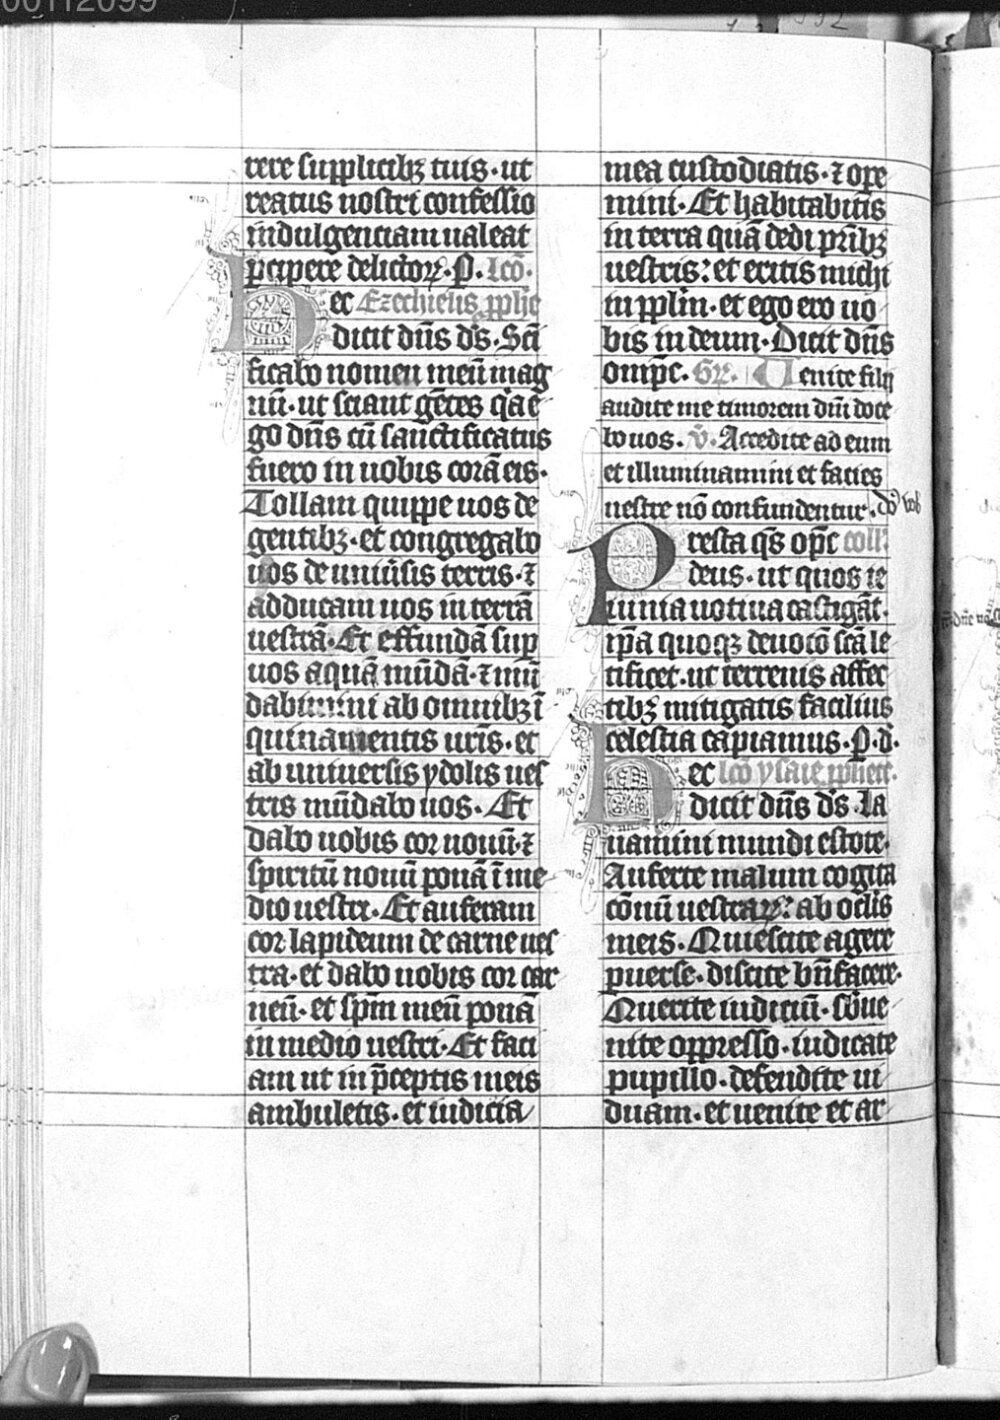 00112099
rere supplicibꝫ tuis · ut
reatus nostri confessio
indulgenciam ualeat
ꝑcipere delictoꝝ · P · lcō ·
Hec Ezechielis ꝓphe
dicit dn̄s ds̄ · Scī
ficabo nomen meū mag
nū · ut sciant gētes qͥa e
go dn̄s cū sanctificatus
fuero in uobis corā eis ·
Tollam quippe uos de
gentibꝫ · et congregabo
uos de uniu̇sis terris · ⁊
adducam uos in terrā
uestrā · Et effundā suꝑ
uos aquā mūdā · ⁊ mū
dabimini ab omnibꝫ ī
quinamentis ur̄is · et
ab uniuersis ydolis ues
tris mūdabo uos · Et
dabo uobis cor nouū · ⁊
spiritū nouū ponā ī me
dio uestri · Et auferam
cor lapideum de carne ues
tra · et dabo uobis cor car
neū · et sp̄m meū ponā
in medio uestri · Et faci
am ut in p̄ceptis meis
ambuletis · et iudicia
mea custodiatis · ⁊ oꝑe
mini · Et habitabitis
in terra quā dedi pr̄ibꝫ
uestris : et eritis michi
in ppl̄m · et ego ero uo
bis in deum · Dicit dn̄s
omīpc · Gr̄ · Uenite filij
audite me timorem dn̄i doce
bo uos · v̄ · Accedite ad eum
et illuminamini et facies
uestre nō confundentur · dō uob
Presta qs̄ op̄c coll'
deus · ut quos ie
iunia uotiua castigāt ·
ip̄a quoqꝫ deuocō scā le
tificet · ut terrenis affec
tibꝫ mitigatis facilius
celestia capiamus · P · d ·
Hec lcō ysaie ꝓphete ·
dicit dn̄s ds̄ · La
uamini mundi estote ·
Auferte malum cogita
cōnū uestraꝝ : ab oclīs
meis · Quiescite agere
puerse · discite bn̄facere ·
Querite iudiciū · sb̄ue
nite oppresso · iudicate
pupillo · defendite ui
duam · et uenite et ar